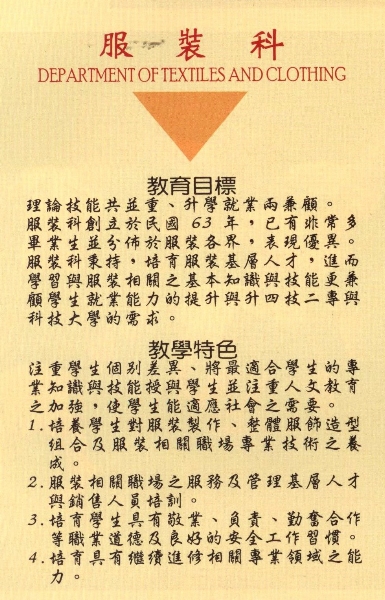 服裝科
DEPARTMENT OF TEXTILES AND CLOTHING
教育目標
理論技能共並重、升學就業兩兼顧。
服裝科創立於民國63年，已有非常多
畢業生並分佈於服裝各界，表現優異。
服裝科秉持，培育服裝基層人才，進而
學習與服裝相關之基本知識與技能更兼
顧學生就業能力的提升與升四技二專與
科技大學的需求。
教學特色
注重學生個別差異、將最適合學生的專
業知識與技能授與學生並注重人文教育
之加強，使學生能適應社會之需要。
1.培養學生對服裝製作、整體服飾造型
組合及服裝相關職場專業技術之養
成。
2.服裝相關職場之服務及管理基層人才
與銷售人員培訓。
3.培育學生具有敬業、負責、勤奮合作
等職業道德及良好的安全工作習慣。
4.培育具有繼續進修相關專業領域之能
力。